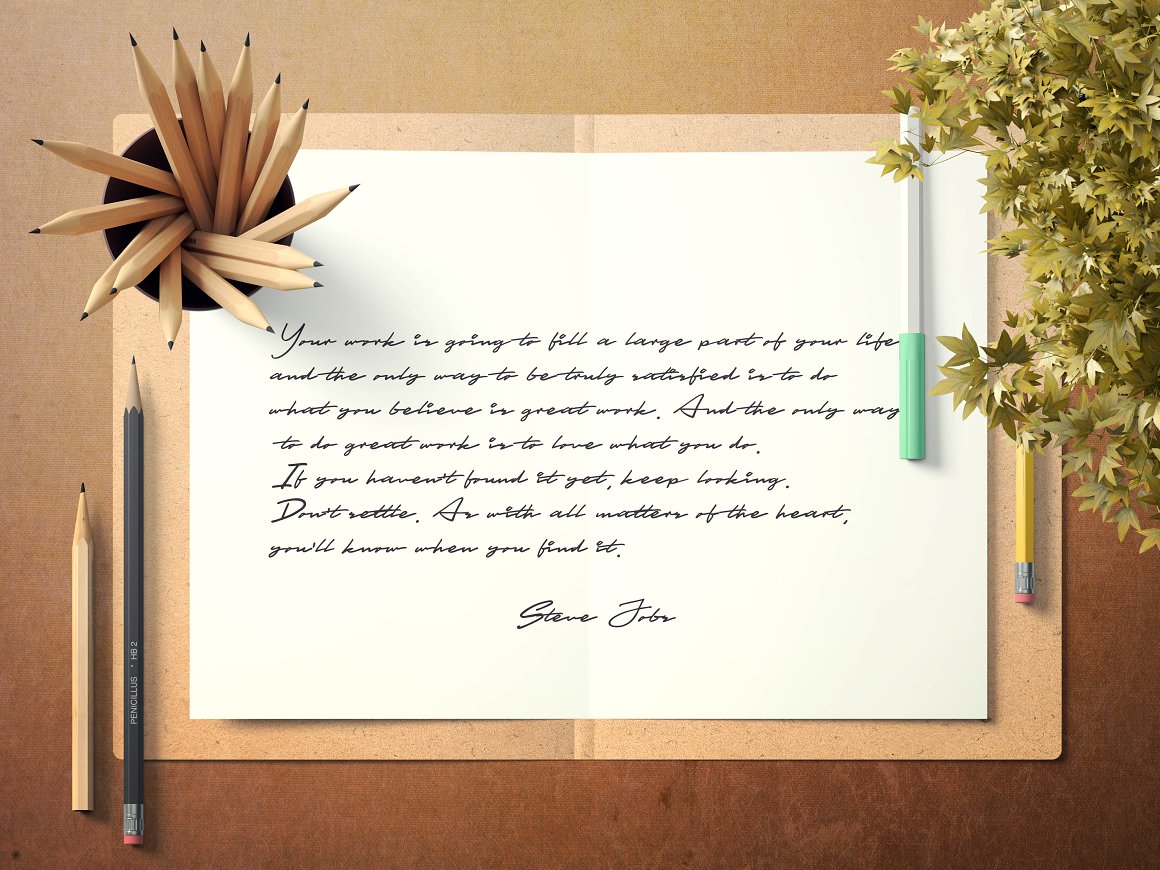 Your work is going to fill a large part of your life
and the only way to be truly satisfied is to do
what you believe is great work. And the only way
to do great work is to love what you do.
If you haven't found it yet, keep looking.
Don't settle. As with all matters of the heart,
you'll know when you find it.
Steve Jobs
PENICILLUS * HB 2